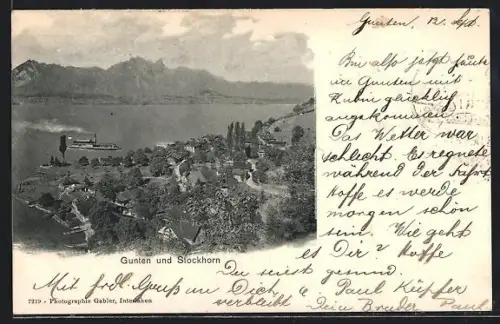 Gunten, 12. Sept.
Bin also jetzt heute
in Gunten mit
Rubin glücklich
angekommen
Das Wetter war
schlecht. Es regnete
während der Fahrt
Hoffe es werde
morgen schön
sein. Wie geht
es Dir? Hoffe
Du seiest gesund.
Gunten und Stockhorn
Mit frdl. Gruß an Dich
verbleibt
Paul Küpfer
Dein Bruder Paul
7219 - Photographie Gabler, Interlaken